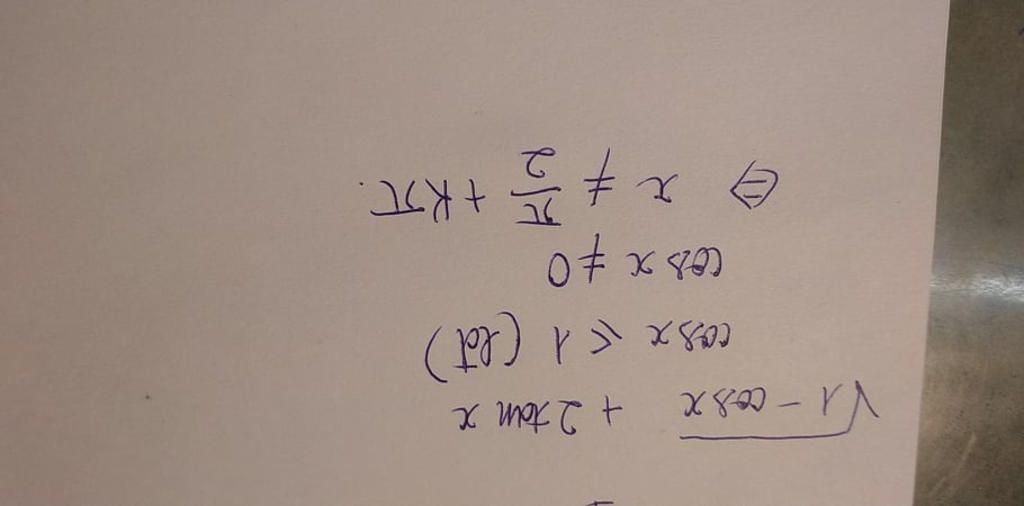 √(1 - cos x) + 2 tan x
cos x ≤ 1 (lđ)
cos x ≠ 0
⇔ x ≠ π/2 + kπ.